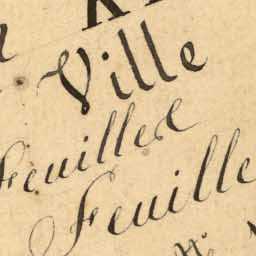 Ville
Feuillee
Feuille